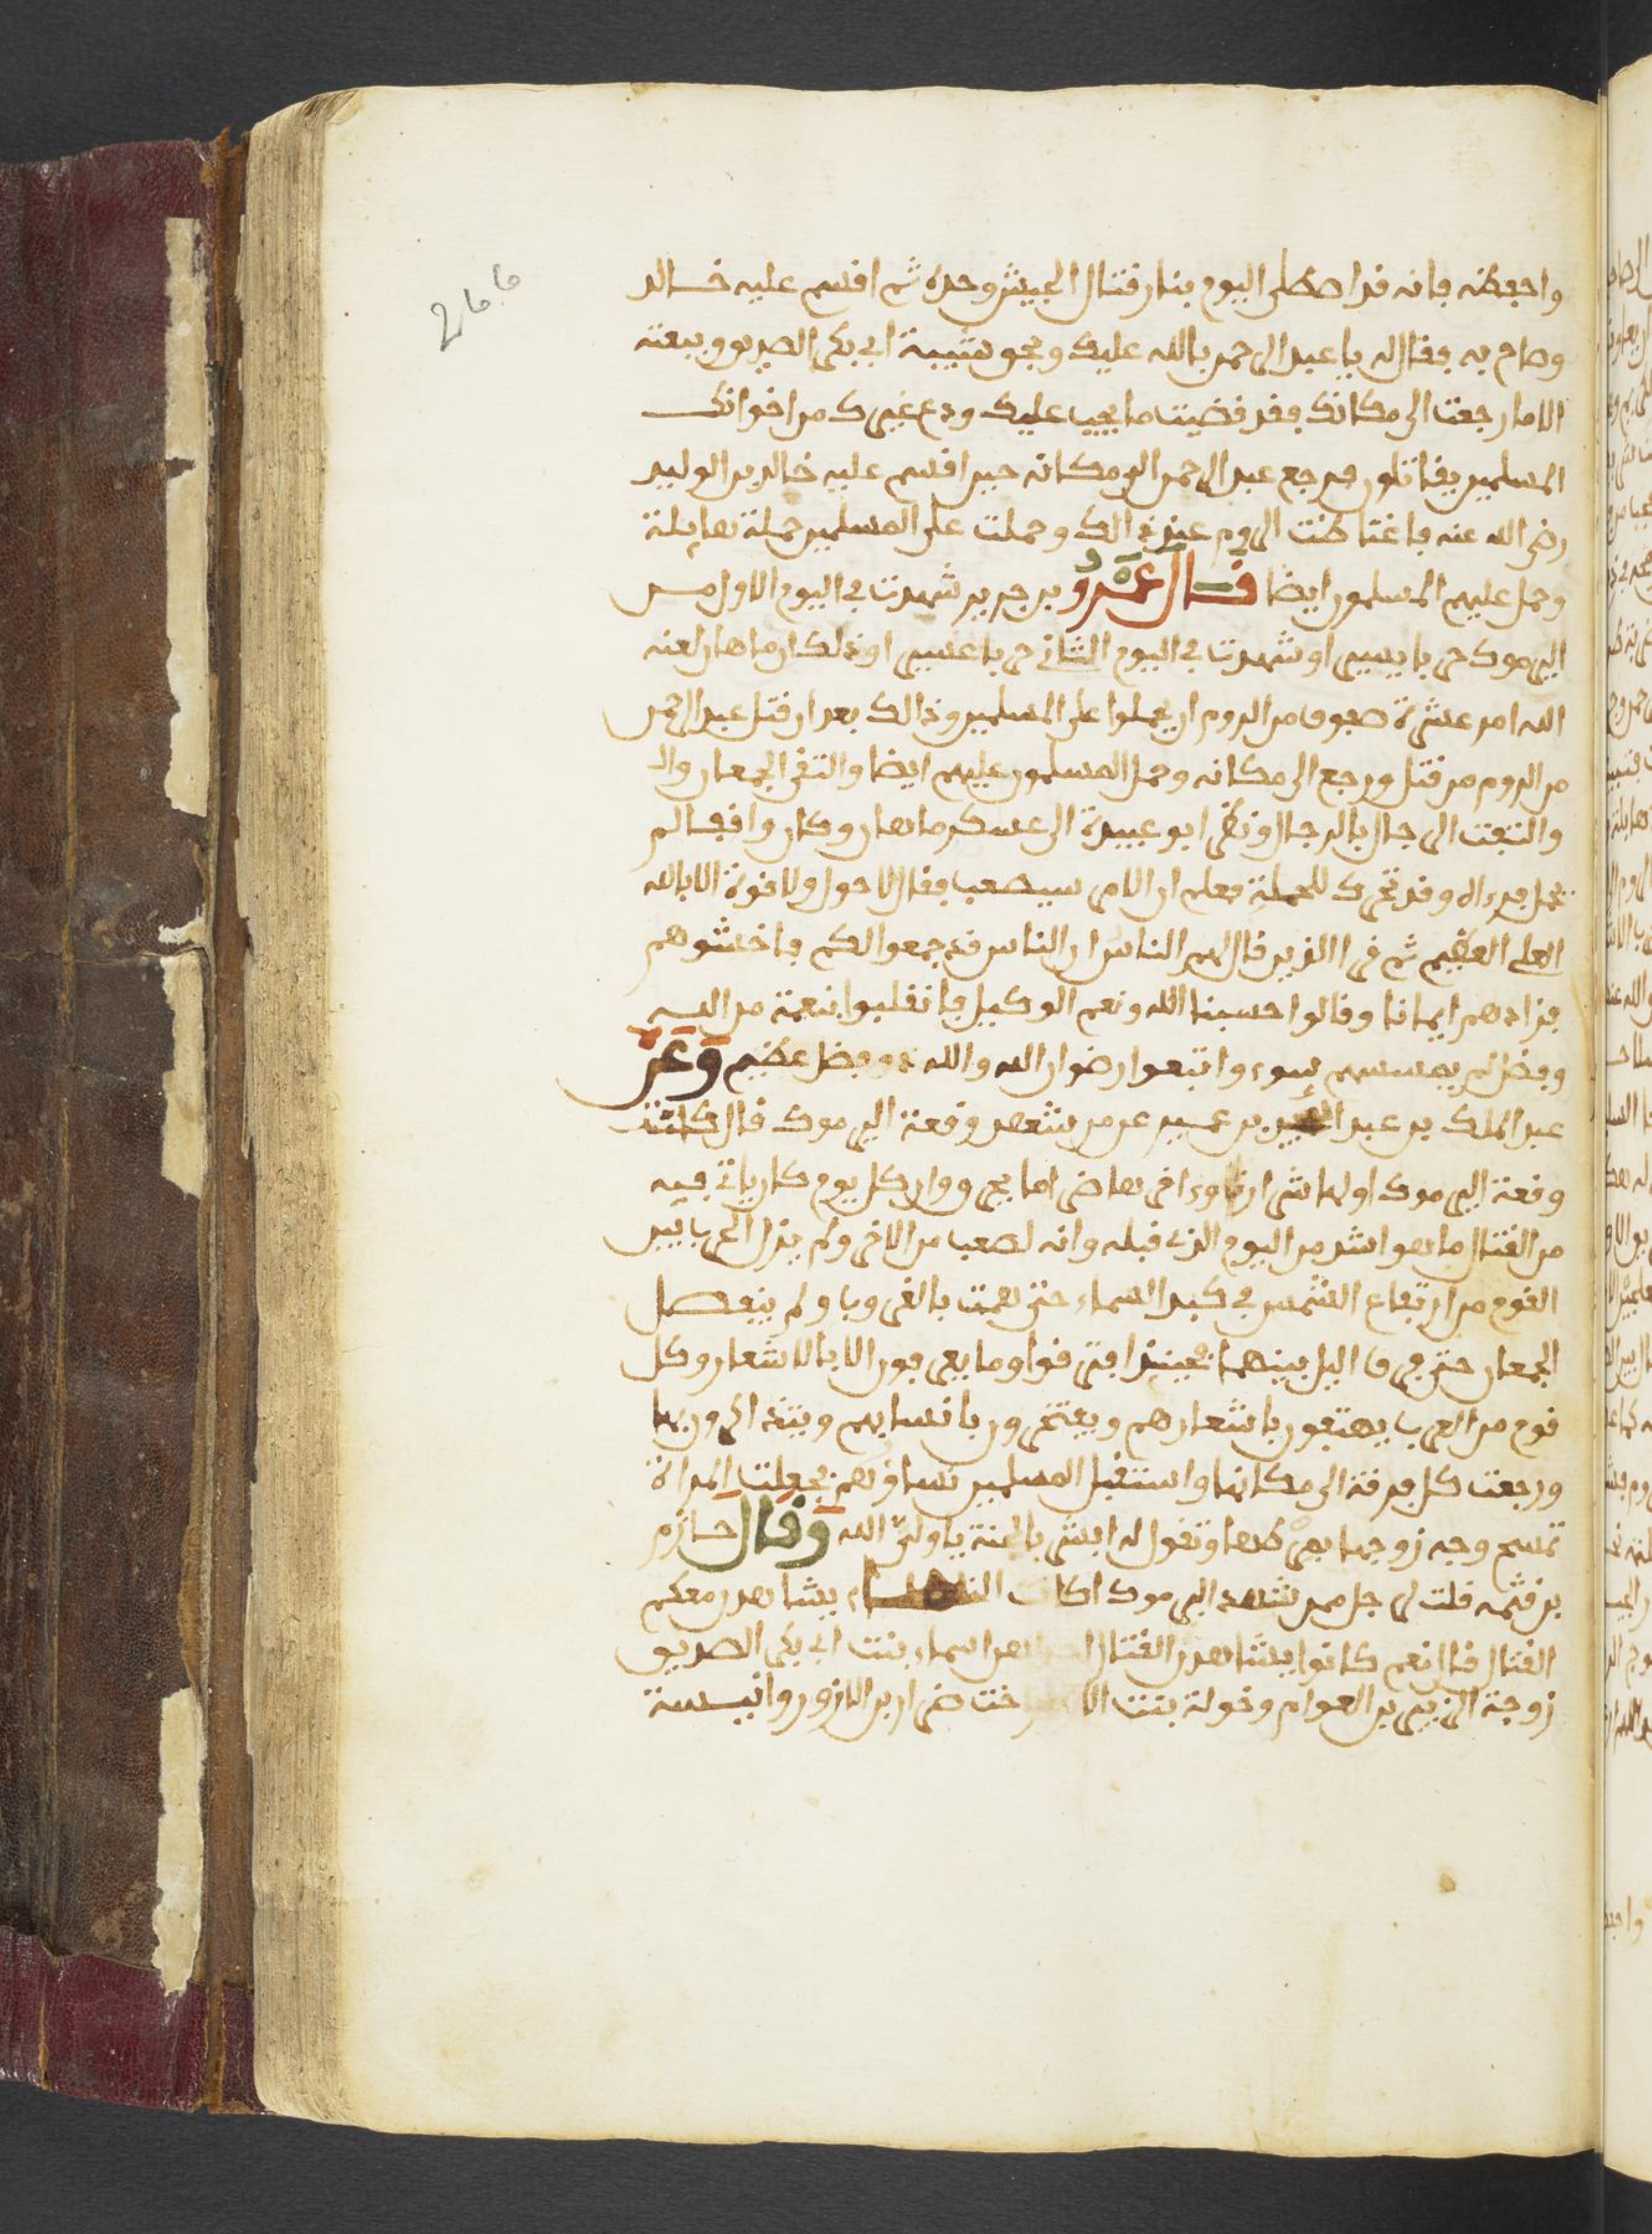 واحفظه فانه قد اصطلى اليوم بنار قتال الجيش وحده ثم اقسم عليه خالد
وصاح به فقال له يا عبد الرحمن بالله عليك وبحق شيبة ابي بكر الصديق وبيعته
الا ما رجعت الى مكانك فقد قضيت ما يجب عليك ودع غيرك من اخوانك
المسلمين يقاتلون فرجع عبد الرحمن الى مكانه حين اقسم عليه خالد بن الوليد
رضي الله عنه فاغتاظت الروم عند ذالك وحملت على المسلمين حملة هايلة
وحمل عليهم المسلمون ايضا قال عمرو بن جرير شهدت في اليوم الاول من
اليرموك حربا يسيرا وشهدت في اليوم الثاني حربا عسيرا وذلك ان ماهان لعنه
الله امر عشرة صفوف من الروم ان يحملوا على المسلمين وذالك بعد ان قتل عبد الرحمن
من الروم من قتل ورجع الى مكانه وحمل المسلمون عليهم ايضا والتقى الجمعان وال
والتفت الرجال بالرجال ونظر ابو عبيدة الى عسكر ماهان وكان واقفا لم
يحمل فرءاه وقد تحرك للحملة فعلم ان الامر سيصعب فقال لا حول ولا قوة الا بالله
العلي العظيم ثم قرا الذين قال لهم الناس ان الناس قد جمعوا لكم فاخشوهم
فزادهم ايمانا وقالوا حسبنا الله ونعم الوكيل فانقلبوا بنعمة من الله
وفضل لم يمسسهم سوء واتبعوا رضوان الله والله ذو فضل عظيم وعن
عبد الملك بن عبد بن عمير عن من شهد وقعة اليرموك قال كانت
وقعة اليرموك اولها شرارة وءاخرها ضراما يحرق وان كل يوم كان ياتي فيه
من القتال ما هو اشد من اليوم الذي قبله وانه لصعب من الاخر ولم يزل الحرب بين
القوم من ارتفاع الشمس في كبد السماء حتى همت بالغروب ولم ينفصل
الجمعان حتى فرق اليل بينهما فحينيذ افترقوا وما يعرفون الا بالاشعار وكل
قوم من العرب يهتفون باشعارهم ويفتخرون بانسابهم ويتذاكرون بها
ورجعت كل فرقة الى مكانها واستقبل المسلمين نساؤهم فجعلت المراة
تمسح وجه زوجها بمرطها وتقول له ابشر بالجنة يا ولي الله وقال حازم
بن قثمه قلت لرجل ممن شهد اليرموك اكان النساء يشاهدن معكم
القتال قال نعم كانوا يشاهدن القتال اسماء بنت ابي بكر الصديق
زوجة الزبير بن العوام وخولة بنت الا خت ضرار بن الازور وانيسة